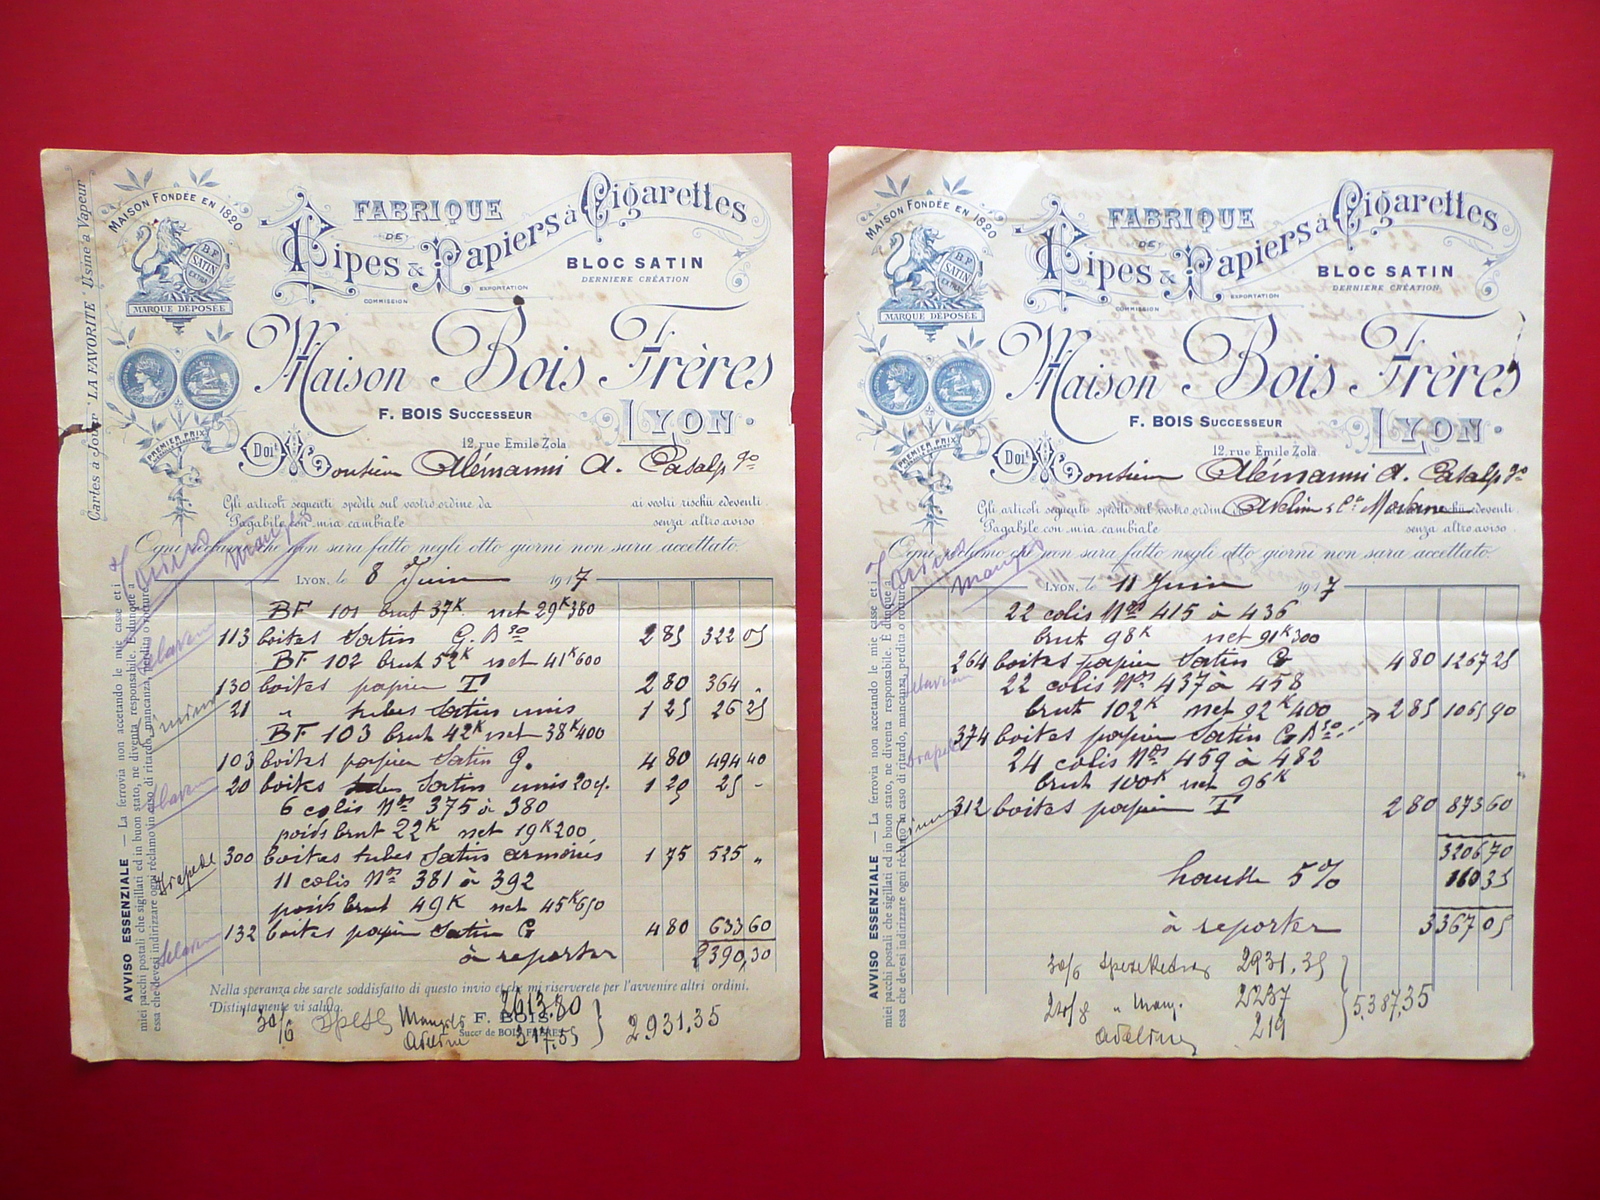 MAISON FONDÉE EN 1820
B.F
SATIN
EXTRA
MARQUE DÉPOSÉE
PREMIER PRIX
FABRIQUE
DE
Pipes & Papiers à Cigarettes
BLOC SATIN
DERNIERE CRÉATION
COMMISSION
EXPORTATION
Maison Bois Frères
F. BOIS SUCCESSEUR
LYON.
12, rue Emile Zola
Doit Monsieur Alémanni A. Casalp go
Gli articoli seguenti spediti sul vostro ordine da ai vostri rischii edeventi
Pagabile con mia cambiale senza altro aviso
Ogni reclamo che non sara fatto negli otto giorni non sara accettato.
Cartes à Jouer "LA FAVORITE" Usine à Vapeur
AVVISO ESSENZIALE — La ferrovia non accetando le mie casse et i
miei pacchi postali che sigillati ed in buon stato, ne diventa responsabile. È dunque a
essa che devesi indirizzare ogni réclamo in caso di ritardo, mancanza, perdita o rotture.
LYON, le 8 Juin 1917
BF 101 brut 37K net 29K380
113 boites Satin G. D 285 322 05
BF 102 brut 52K net 41K600
130 boites papier T 2 80 364 "
21 " tubes Satin unis 1 25 26 25
BF 103 brut 42K net 38K400
103 boites papier Satin G. 4 80 494 40
20 boites Satin unis 20c/. 1 25 25 -
6 colis Nos 375 à 380
poids brut 22K net 19K200
300 boites tubes Satin armoriés 1 75 525 "
11 colis Nos 381 à 392
poids brut 49K net 45K650
132 boites papier Satin G 4 80 633 60
à reporter 2390,30
Nella speranza che sarete soddisfatto di questo invio et che mi riserverete per l'avvenire altri ordini,
Distintamente vi saluto.
F. BOIS
Succr de BOIS FRÈRES
30/6 spese 2613.80
317.55
2931,35
MAISON FONDÉE EN 1820
B.F
SATIN
EXTRA
MARQUE DÉPOSÉE
PREMIER PRIX
FABRIQUE
DE
Pipes & Papiers à Cigarettes
BLOC SATIN
DERNIERE CRÉATION
COMMISSION
EXPORTATION
Maison Bois Frères
F. BOIS SUCCESSEUR
LYON.
12, rue Emile Zola.
Doit Monsieur Alémanni A. Casalp go
Gli articoli seguenti spediti sul vostro ordine rischii edeventi
Pagabile con mia cambiale senza altro aviso
Ogni reclamo che non sara fatto negli otto giorni non sara accettato.
AVVISO ESSENZIALE — La ferrovia non accetando le mie casse et i
miei pacchi postali che sigillati ed in buon stato, ne diventa responsabile. È dunque a
essa che devesi indirizzare ogni réclamo in caso di ritardo, mancanza, perdita o rotture.
LYON, le 11 Juin 1917
22 colis Nos 415 à 436
brut 98K net 91K300
264 boites papier Satin G 4 80 1267 25
22 colis Nos 437 à 458
brut 102K net 92K400
374 boites papier Satin G D 285 1065 90
24 colis Nos 459 à 482
brut 100K net 96K
312 boites papier T 2 80 873 60
3206 70
hausse 5% 160 35
à reporter 3367 05
30/6 2931,35
2237
219
5,387,35